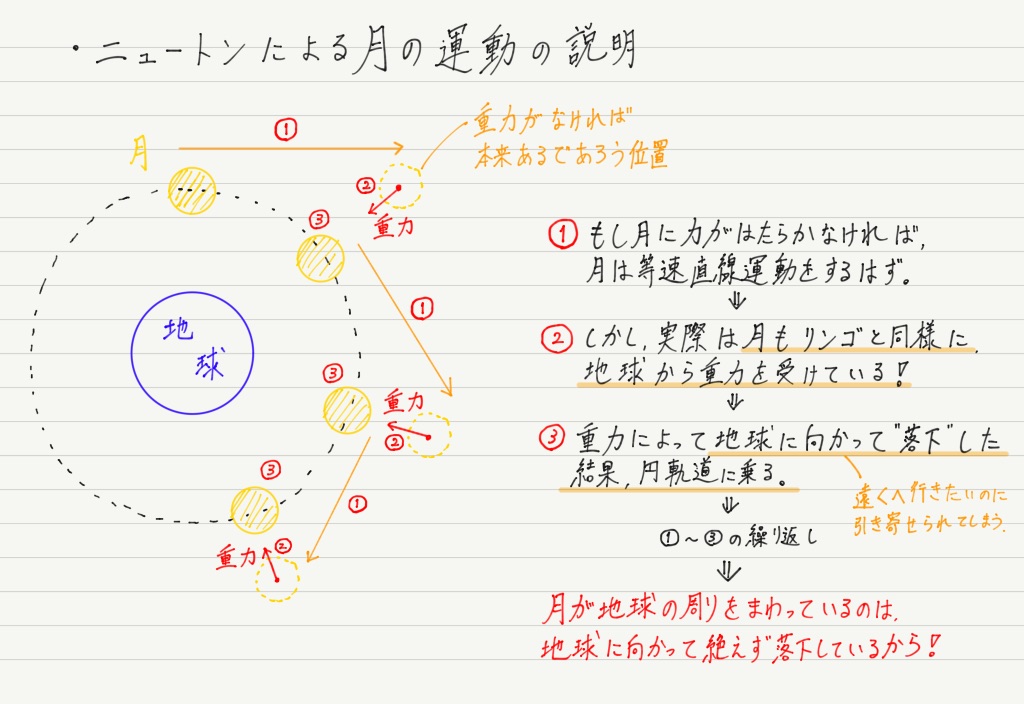 ・ニュートンによる月の運動の説明
①
重力がなければ
本来あるであろう位置
月
②
重力
③
①
地
球
③
重力
②
③
①
重力
②
①もし月に力がはたらかなければ，
月は等速直線運動をするはず。
⇓
②しかし，実際は月もリンゴと同様に，
地球から重力を受けている！
⇓
③重力によって地球に向かって"落下"した
結果，円軌道に乗る。
遠くへ行きたいのに
引き寄せられてしまう．
⇓
①～③の繰り返し
⇓
月が地球の周りをまわっているのは，
地球に向かって絶えず落下しているから！